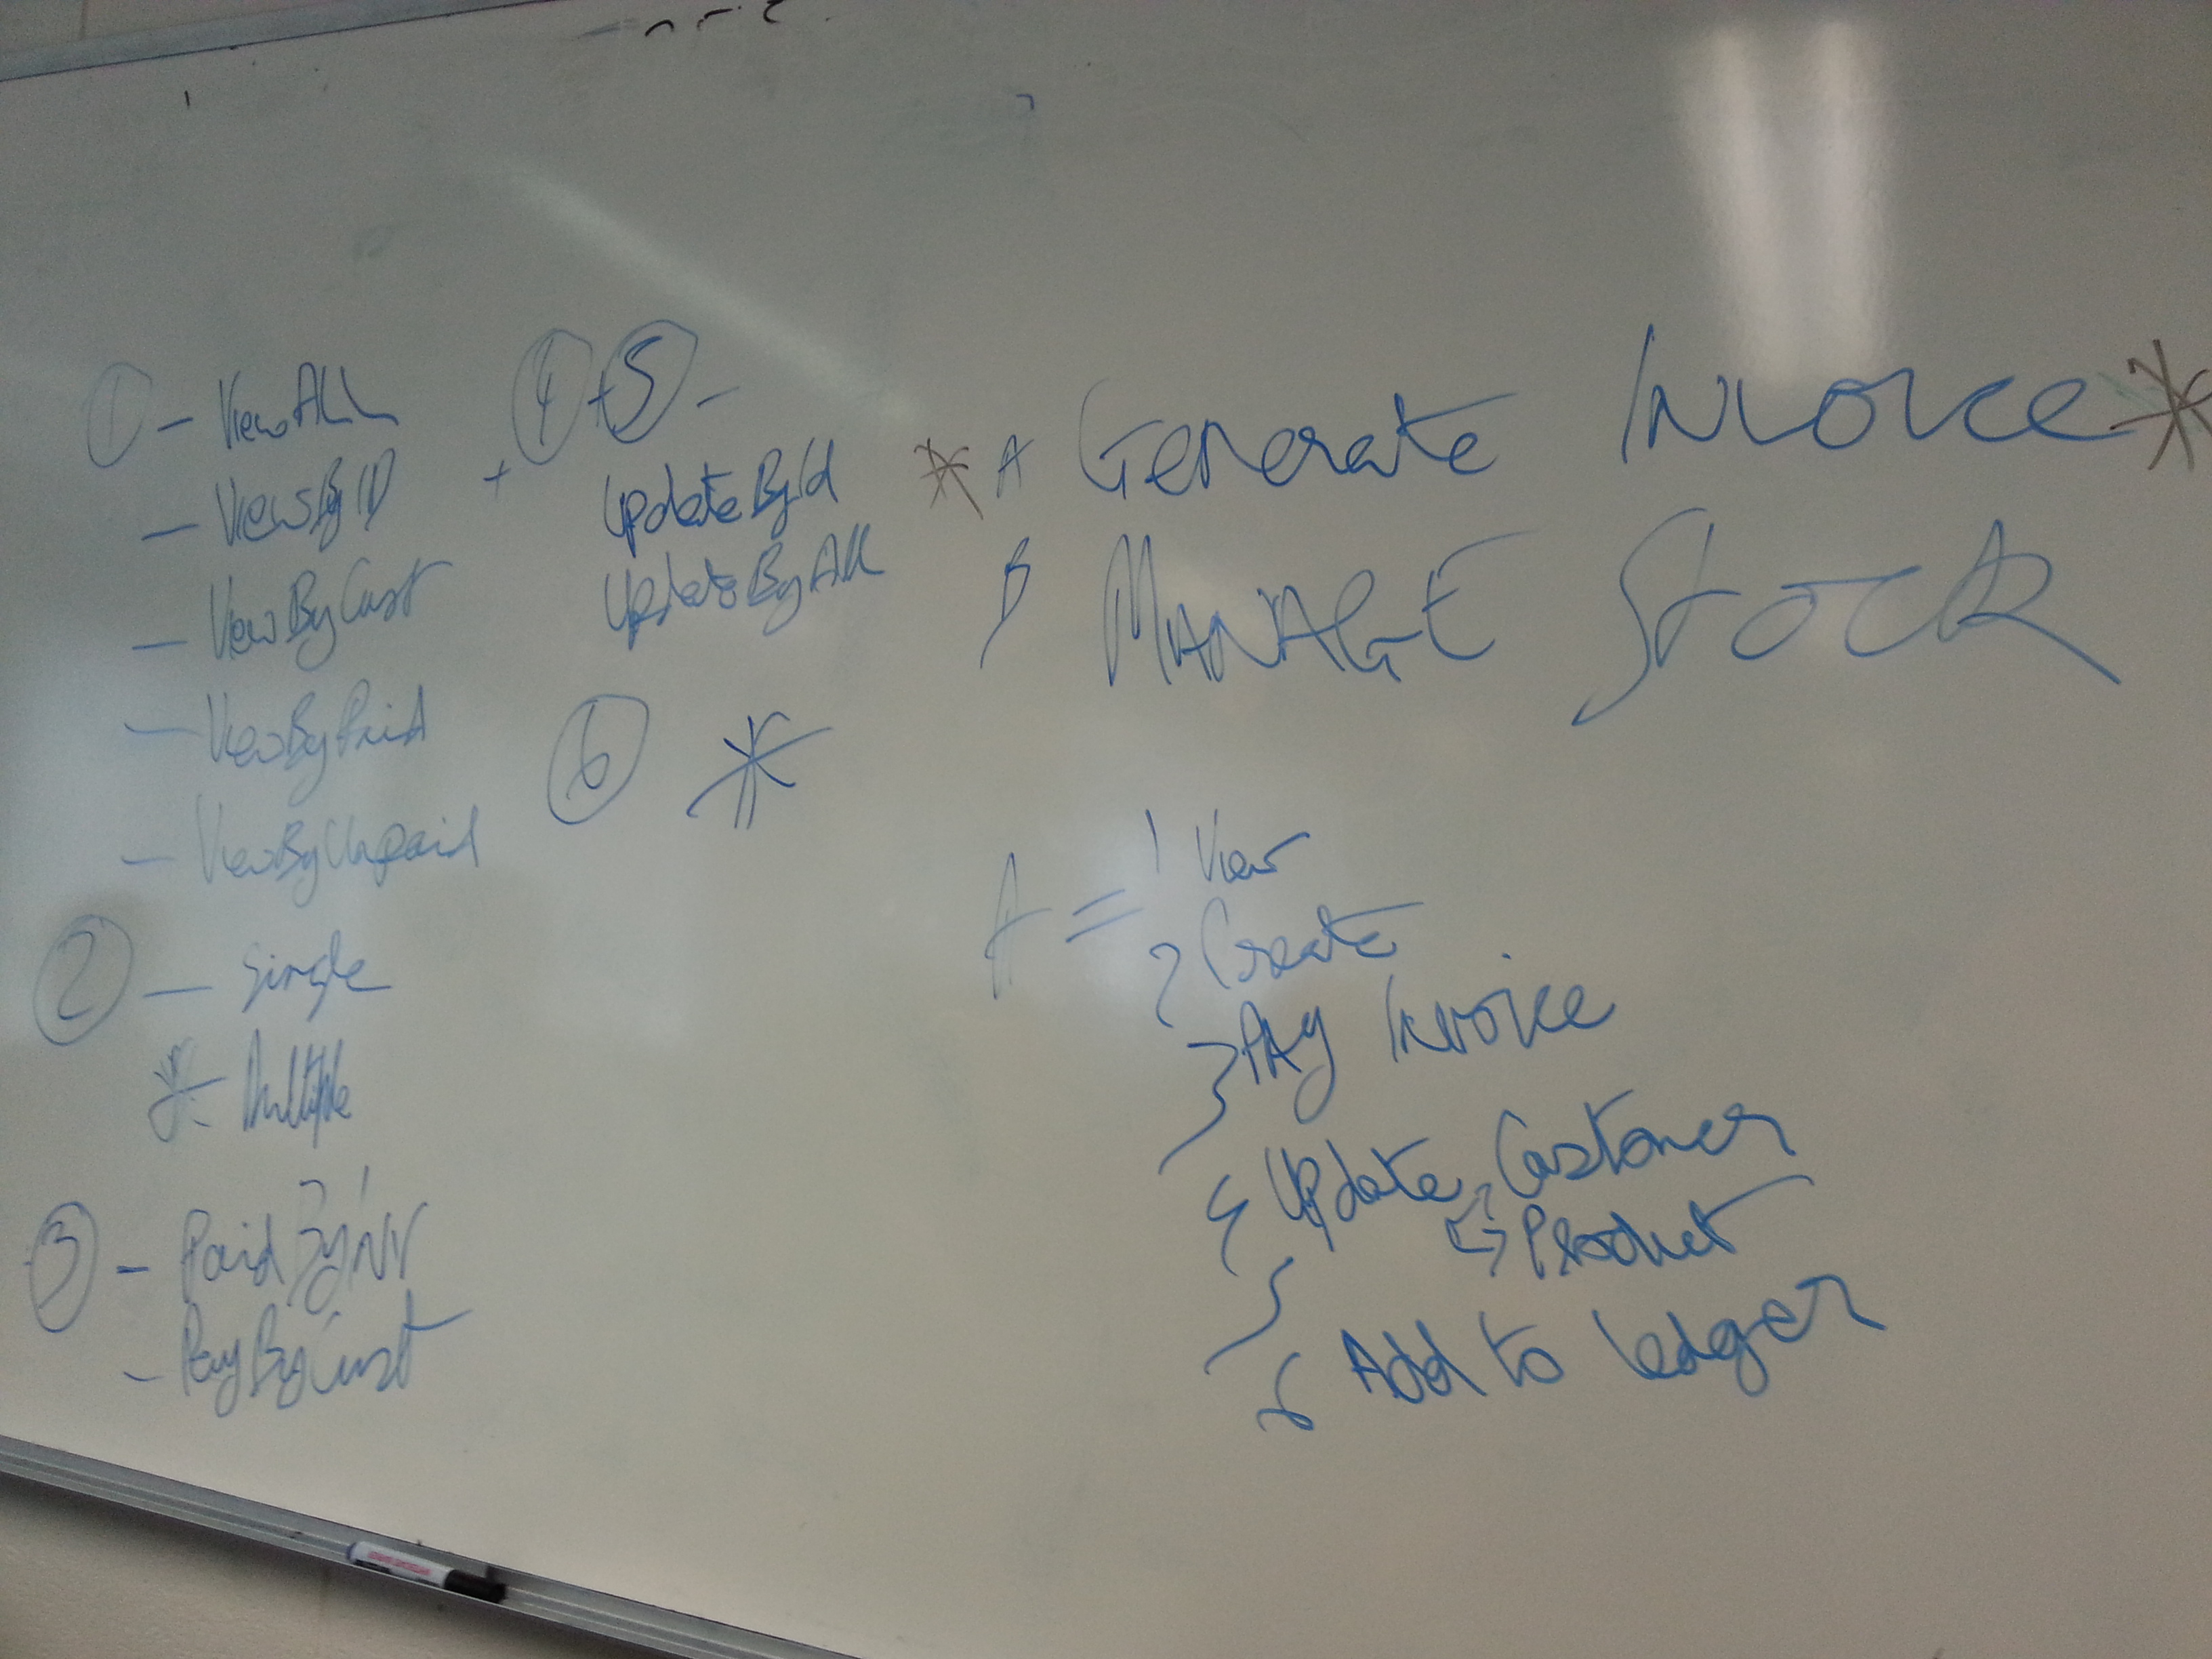 ① - ViewAll
- ViewByID
- ViewByCust
- ViewByPaid
- ViewByUnpaid
② - Single
* - Multiple
③ - PaidByINV
- PayByCust
+ ④ + ⑤ -
UpdateById
UpdateByAll
⑥ *
* A Generate Invoice *
B MANAGE Stock
A = 1 View
2 Create
3 PAy Invoice
4 Update Customer
5 Product
6 Add to ledger